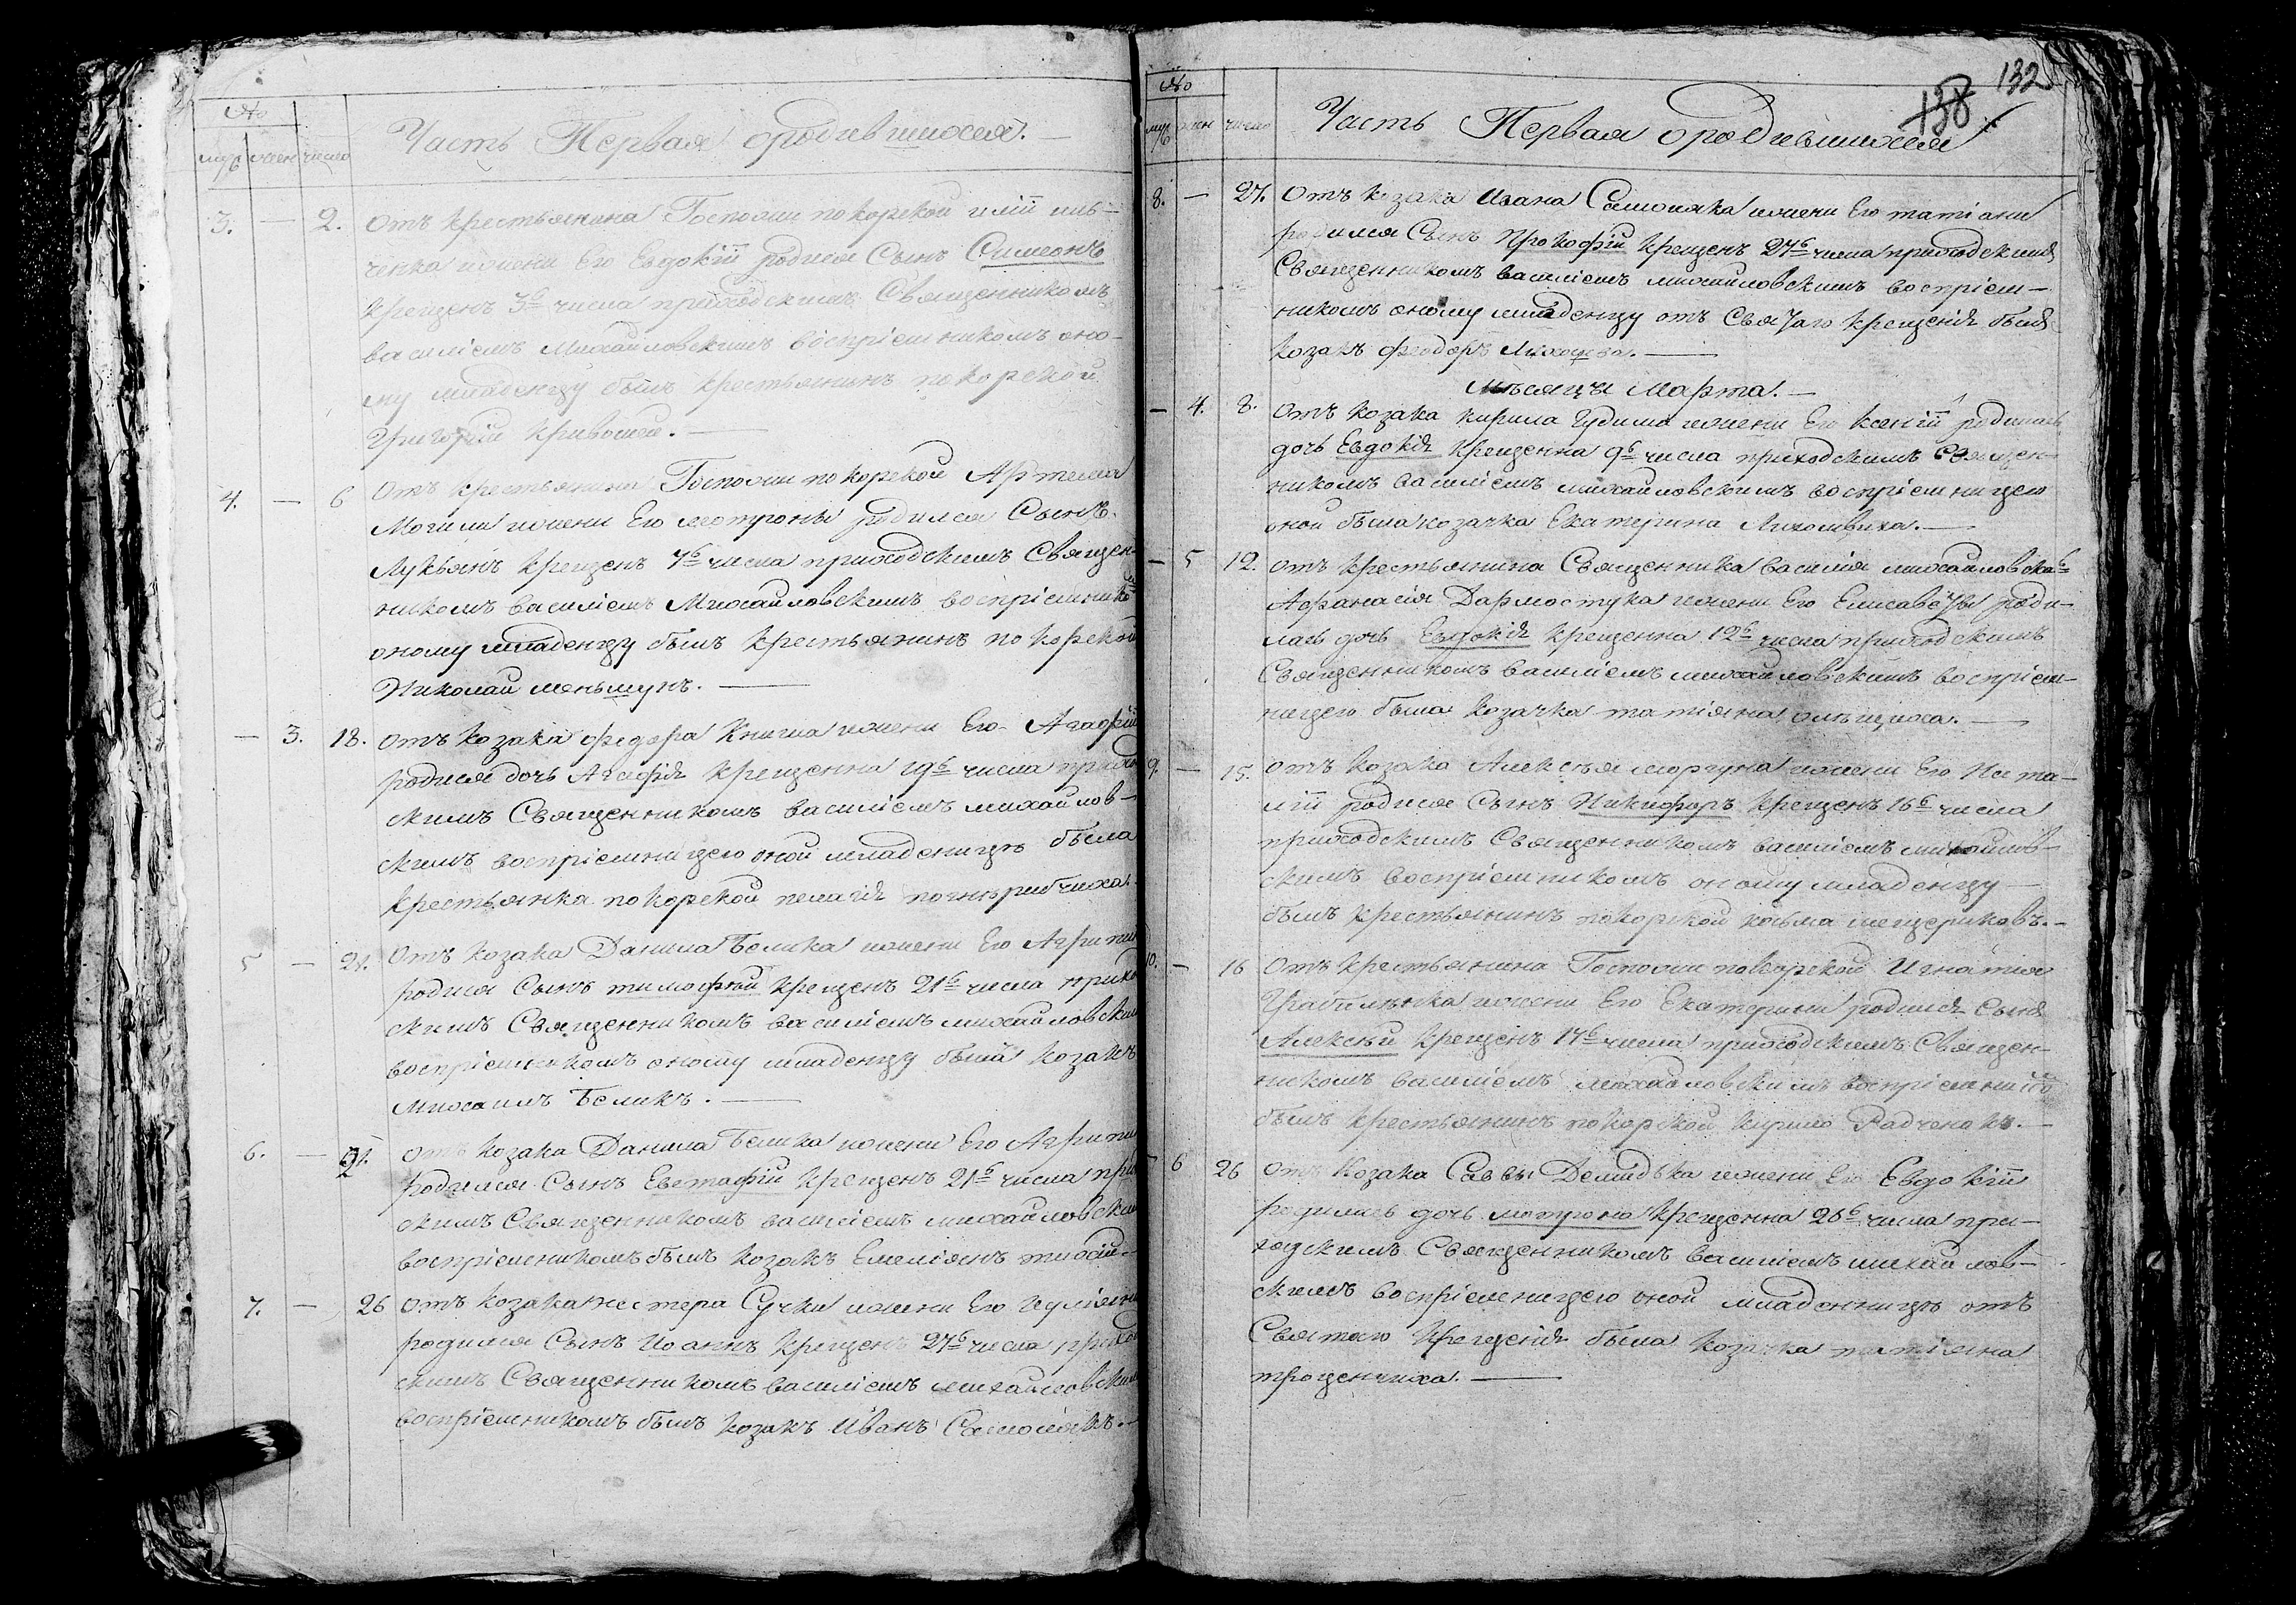 №
муж женс число
Часть Первая о родившихся. —
3. — 2. Отъ крестьянина Госпожи покорской илїи иль-
ченка и жени Его Евдокїи родися Сынъ Симеонъ
крещенъ 3го числа приходскимъ Священникомъ
василїемъ Михайловскимъ воспрїемникомъ оно-
му младенцу былъ крестьянинъ покорской
Григорїй кривошея. —
4. — 6 Отъ крестьянина Госпожи покорской Артема
Могили и жени Его мотроны родился Сынъ
Лукьянъ крещенъ 7го числа приходскимъ Священ-
никомъ василїемъ Михайловскимъ воспрїемнико
оному младенцу былъ крестьянинъ покорской
Николай меньшунъ. —
— 3. 18. Отъ козака федора Книша и жени Его Агафїи
родися дочь Агафїя крещенна 19го числа приход
скимъ Священникомъ василїемъ михайлов-
скимъ воспрїемницею оной младеницѣ была
крестьянка покорской пелагїя
5 — 21. Отъ козака Данила Белика и жени Его Агрипин
родися Сынъ тимофѣй крещенъ 21го числа прихо
скимъ Священникомъ василїемъ михайловским
воспрїемникомъ оному младенцу былъ козакъ
Михаилъ Беликъ. —
6. — 21. Отъ козака Данила Белика и жени Его Агрипин
родился Сынъ Евстафїй крещенъ 21го числа при
скимъ Священникомъ василїемъ михайловским
воспрїемникомъ былъ козакъ Емелїянъ
7. — 26 Отъ козака нестера Сучки и жени Его Иулїяни
родился Сынъ Иоаннъ крещенъ 27го числа прихо
скимъ Священникомъ василїемъ михайловским
воспрїемникомъ былъ козакъ Иванъ Самойлякъ. —
132
138
№
муж жен число
Часть Первая о родившихся
8. — 27. Отъ козака Ивана Самойляка и жени Его татїани
родился Сынъ Прокофїй крещенъ 27го числа приходскимъ
Священникомъ василїемъ михайловскимъ воспрїем-
никомъ оному младенцу отъ Святаго крещенїя былъ
козакъ феодоръ —
мѣсяцъ Марта. —
— 4. 8. Отъ козака кирила Гудима и жени Его ксенїи родилась
дочь Евдокїя крещенна 9го числа приходскимъ Священ-
никомъ василїемъ михайловскимъ воспрїемницею
оной была козачка Екатерина —
— 5 12. Отъ крестьянина Священника василия михайловскаго
Афанасїя Дармостука и жени Его Елисаветы роди-
лась дочь Евдокїя крещенна 12го числа приходскимъ
Священникомъ василїемъ михайловскимъ воспрїем-
ницею была козачка татїяна —
9. — 15. Отъ козака Алексѣя моргуна и жени Его Ната-
лїи родися Сынъ Никифоръ крещенъ 16го числа
приходскимъ Священникомъ василїемъ михайлов-
скимъ воспрїемникомъ оному младенцу —
былъ крестьянинъ покорской козьма мещериковъ. —
10. — 16 Отъ крестьянина Госпожи покорской Игнатия
и жени Его Екатерини родился Сынъ
Алексѣй крещенъ 17го числа приходскимъ Священ-
никомъ василїемъ михайловскимъ воспрїемнико
былъ крестьянинъ покорской кирило Радченокъ. —
— 6 26 Отъ козака Саввы Демидька и жени Его Евдокїи
родилась дочь мотрона крещенна 26го числа при-
ходскимъ Священникомъ василїемъ михайлов-
скимъ воспрїемницею оной младенницѣ отъ
Святаго крещенїя была козачка татїяна
троценчиха. —